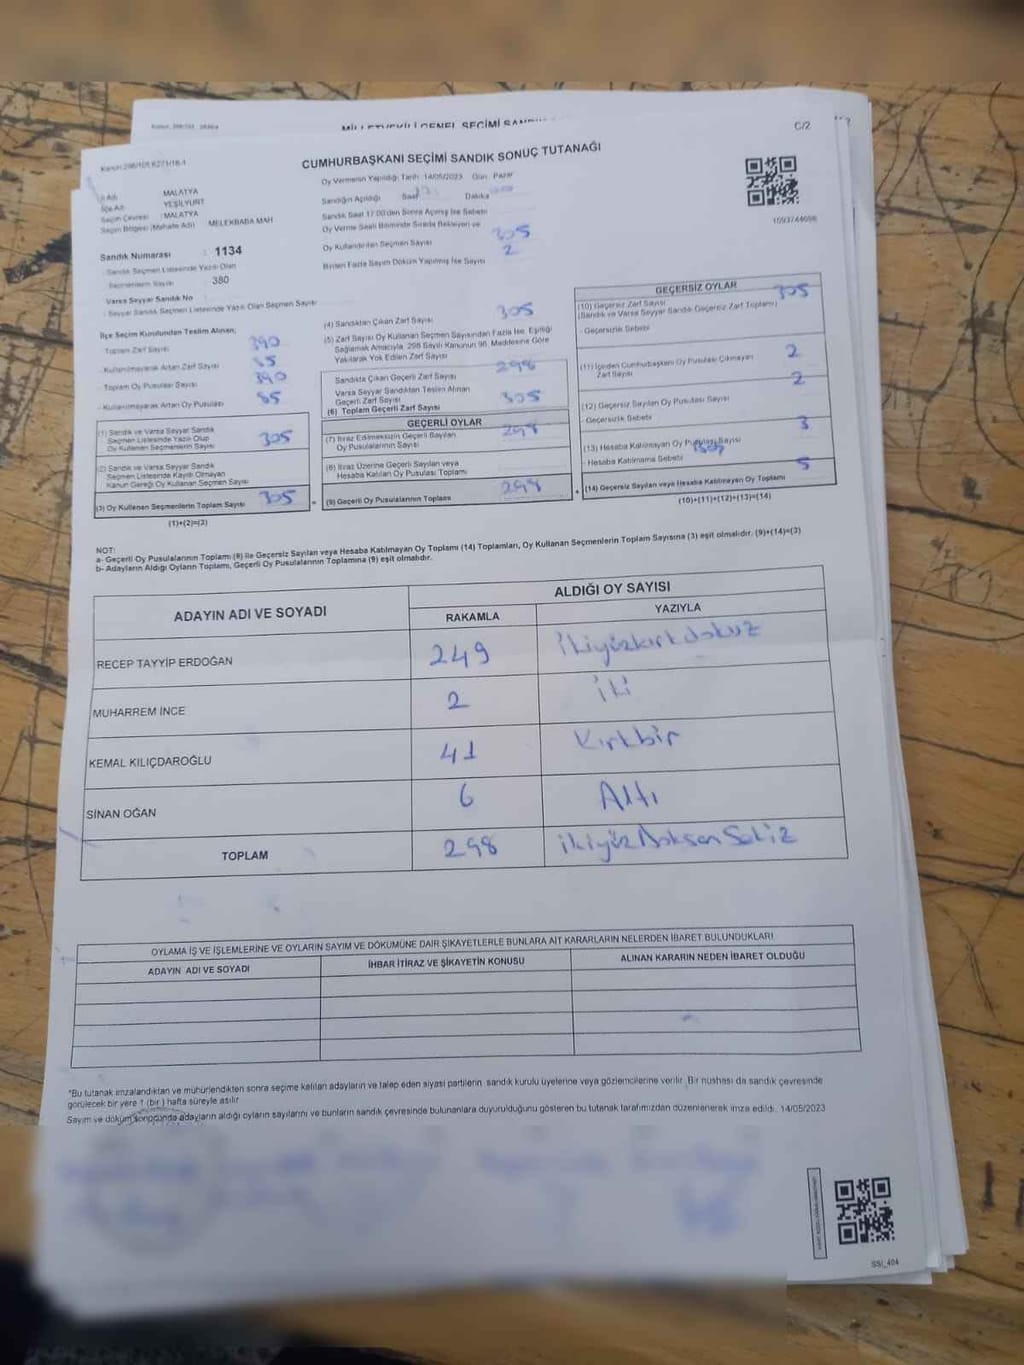 MİLLETVEKİLİ GENEL SEÇİMİ
C/2
CUMHURBAŞKANI SEÇİMİ SANDIK SONUÇ TUTANAĞI
Oy Vermenin Yapıldığı Tarih 14/05/2023 Gün Pazar
İl Adı MALATYA
İlçe Adı YEŞİLYURT
Seçim Çevresi : MALATYA
Seçim Bölgesi (Mahalle Adı) MELEKBABA MAH
Sandığın Açıldığı Saat Dakika
Sandık Saat 17:00'den Sonra Açılmış İse Sebebi
Oy Verme Saati Bitiminde Sırada Bekleyen ve
Oy Kullandırılan Seçmen Sayısı 305
Birden Fazla Sayım Döküm Yapılmış İse Sayısı 2
1093744698
Sandık Numarası : 1134
Sandık Seçmen Listesinde Yazılı Olan
Seçmenlerin Sayısı 380
Varsa Seyyar Sandık No
Seyyar Sandık Seçmen Listesinde Yazılı Olan Seçmen Sayısı
İlçe Seçim Kurulundan Teslim Alınan;
Toplam Zarf Sayısı 390
- Kullanılmayarak Artan Zarf Sayısı 85
- Toplam Oy Pusulası Sayısı 390
- Kullanılmayarak Artan Oy Pusulası 85
(1) Sandık ve Varsa Seyyar Sandık
Seçmen Listesinde Yazılı Olup
Oy Kullanan Seçmenlerin Sayısı 305
(2) Sandık ve Varsa Seyyar Sandık
Seçmen Listesinde Kayıtlı Olmayan
Kanun Gereği Oy Kullanan Seçmen Sayısı
(3) Oy Kullanan Seçmenlerin Toplam Sayısı 305
(1)+(2)=(3)
(4) Sandıktan Çıkan Zarf Sayısı 305
(5) Zarf Sayısı Oy Kullanan Seçmen Sayısından Fazla İse, Eşitliği
Sağlamak Amacıyla, 298 Sayılı Kanunun 98. Maddesine Göre
Yakılarak Yok Edilen Zarf Sayısı
Sandıkta Çıkan Geçerli Zarf Sayısı 298
Varsa Seyyar Sandıktan Teslim Alınan
Geçerli Zarf Sayısı
(6) Toplam Geçerli Zarf Sayısı 305
GEÇERLİ OYLAR
(7) İtiraz Edilmeksizin Geçerli Sayılan
Oy Pusulalarının Sayısı 298
(8) İtiraz Üzerine Geçerli Sayılan veya
Hesaba Katılan Oy Pusulası Toplamı
(9) Geçerli Oy Pusulalarının Toplamı 298
GEÇERSİZ OYLAR
(10) Geçersiz Zarf Sayısı 305
(Sandık ve Varsa Seyyar Sandık Geçersiz Zarf Toplamı)
- Geçersizlik Sebebi
(11) İçinden Cumhurbaşkanı Oy Pusulası Çıkmayan
Zarf Sayısı 2
(12) Geçersiz Sayılan Oy Pusulası Sayısı 2
- Geçersizlik Sebebi
(13) Hesaba Katılmayan Oy Pusulası Sayısı 3
- Hesaba Katılmama Sebebi
(14) Geçersiz Sayılan veya Hesaba Katılmayan Oy Toplamı 5
(10)+(11)+(12)+(13)=(14)
NOT:
a- Geçerli Oy Pusulalarının Toplamı (9) ile Geçersiz Sayılan veya Hesaba Katılmayan Oy Toplamı (14) Toplamları, Oy Kullanan Seçmenlerin Toplam Sayısına (3) eşit olmalıdır. (9)+(14)=(3)
b- Adayların Aldığı Oyların Toplamı, Geçerli Oy Pusulalarının Toplamına (9) eşit olmalıdır.
ADAYIN ADI VE SOYADI
ALDIĞI OY SAYISI
RAKAMLA YAZIYLA
RECEP TAYYİP ERDOĞAN 249 İkiyüzkırkdokuz
MUHARREM İNCE 2 İki
KEMAL KILIÇDAROĞLU 41 Kırkbir
SİNAN OĞAN 6 Altı
TOPLAM 298 ikiyüzDoksanSekiz
OYLAMA İŞ VE İŞLEMLERİNE VE OYLARIN SAYIM VE DÖKÜMÜNE DAİR ŞİKAYETLERLE BUNLARA AİT KARARLARIN NELERDEN İBARET BULUNDUKLARI
ADAYIN ADI VE SOYADI İHBAR İTİRAZ VE ŞİKAYETİN KONUSU ALINAN KARARIN NEDEN İBARET OLDUĞU
*Bu tutanak imzalandıktan ve mühürlendikten sonra seçime katılan adayların ve talep eden siyasi partilerin sandık kurulu üyelerine veya gözlemcilerine verilir. Bir nüshası da sandık çevresinde
görülecek bir yere 1 (bir) hafta süreyle asılır
Sayım ve döküm sonucunda adayların aldığı oyların sayılarını ve bunların sandık çevresinde bulunanlara duyurulduğunu gösteren bu tutanak tarafımızdan düzenlenerek imza edildi. 14/05/2023
SSI_404